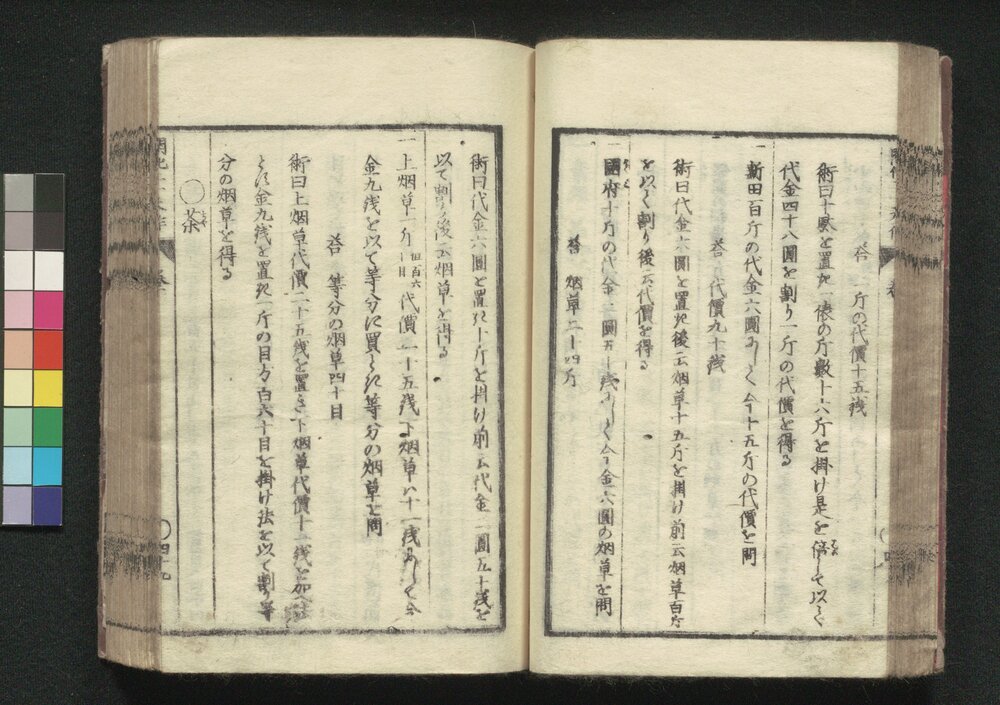 答 一斤の代價十五銭
術曰十駄を置九一俵の斤數十六斤を掛け是を倍して以て
代金四十八圓を割り一斤の代價を得る
一 新田百斤の代金六圓あらく今十五斤の代價を問
答 代價九十銭
術曰代金六圓を置九後云烟草十五斤を掛け前云烟草百斤
を以く割り後云代價を得る
一 國府十斤の代金二圓五十銭あらく今金六圓の烟草を問
答 烟草二十四斤
術曰代金六圓を置九十斤を掛け前云代金二圓五十銭を
以て割り後云烟草を得る
一 上烟草一斤 但百六十目 代價二十五銭下烟草ハ十一銭あらく今
金九銭を以て等分に買とに等分の烟草を問
答 等分の烟草四十目
術曰上烟草代價二十五銭を置き下烟草代價十一銭を加へ法
とに金九銭を置九一斤の目方百六十目を掛け法を以て割り等
分の烟草を得る
〇茶